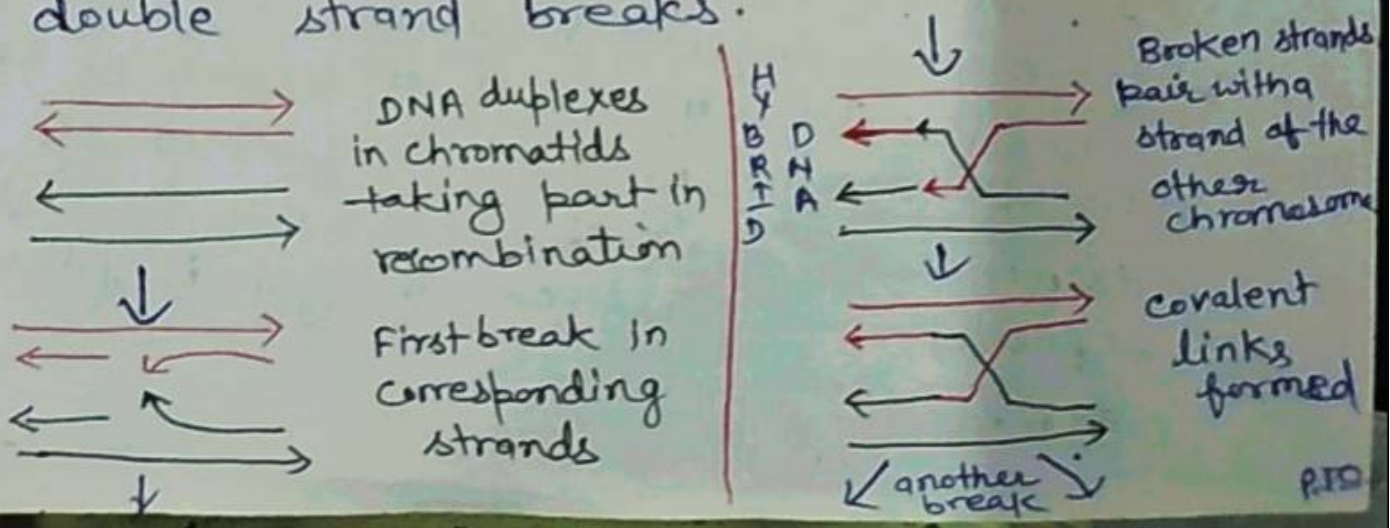 double strand breaks.
DNA duplexes
in chromatids
taking part in
recombination
First break in
corresponding
strands
HYBRID
DNA
Broken strands
pair with a
strand of the
other
chromosome
covalent
links
formed
another
break
P.T.O